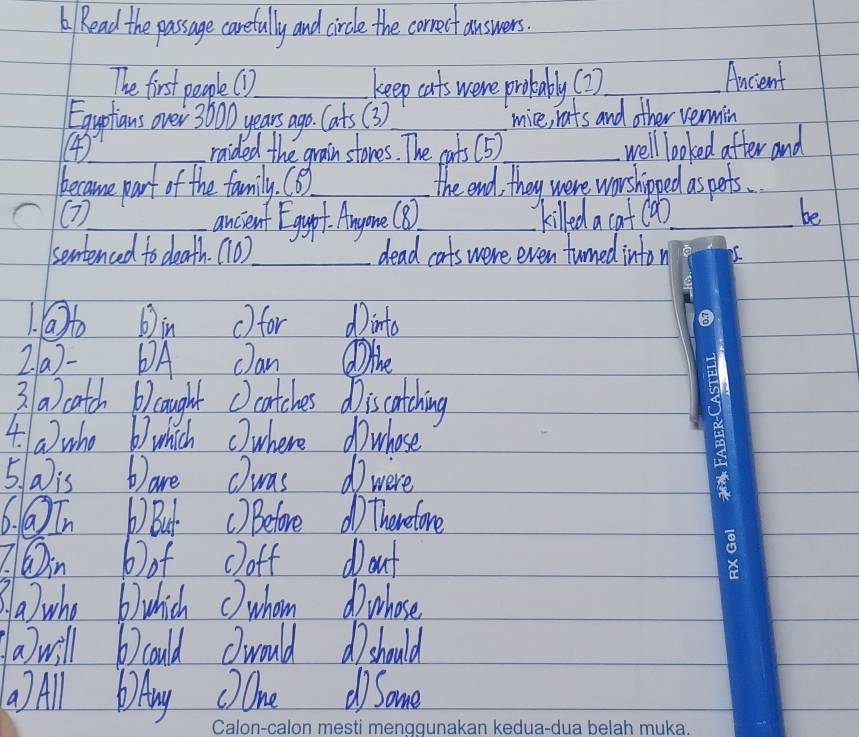 6. Read the passage carefully and circle the correct answers.
The first people (1)________ keep cats were probably (2)________ Ancient
Egyptians over 3000 years ago. Cats (3)________ mice, rats and other vermin
(4)________ raided the grain stores. The cats (5)________ well looked after and
became part of the family. (6)________ the end, they were worshipped as pets..
(7)________ ancient Egypt. Anyone (8)________ killed a cat (9)________ be
sentenced to death. (10)________ dead cats were even turned into
1. a) to b) in c) for d) into
2. a) - b) A c) an d) the
3. a) catch b) caught c) catches d) is catching
4. a) who b) which c) where d) whose
5. a) is b) are c) was d) were
6. a) In b) But c) Before d) Therefore
7. a) in b) of c) off d) out
8. a) who b) which c) whom d) whose
a) will b) could c) would d) should
a) All b) Any c) One d) Some
Calon-calon mesti menggunakan kedua-dua belah muka.
0.7
FABER-CASTELL
RX Gel